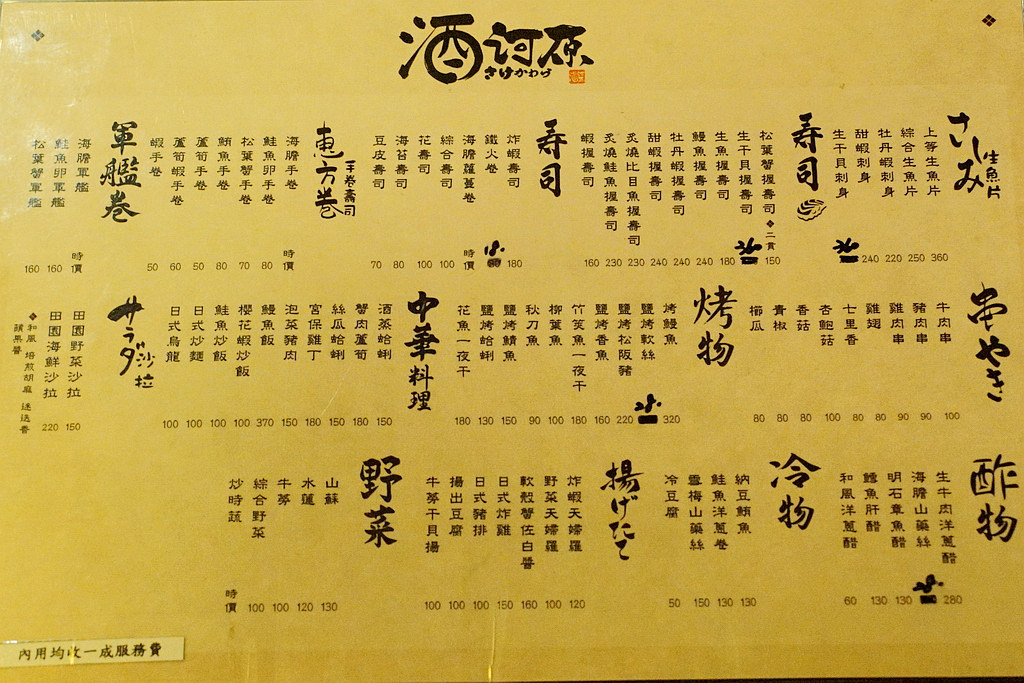 酒河原
さけかわげ
さしみ 生魚片
上等生魚片 360
綜合生魚片 250
牡丹蝦刺身 220
甜蝦刺身 240
生干貝刺身
寿司
松葉蟹握壽司 ❖二貫 150
生干貝握壽司
生魚握壽司 180
鰻魚握壽司 240
牡丹蝦握壽司 240
甜蝦握壽司 240
炙燒比目魚握壽司 230
炙燒鮭魚握壽司 230
蝦握壽司 160
寿司
炸蝦壽司 180
鐵火卷
海膽蘿蔓卷 時價
綜合壽司 100
花壽司 100
海苔壽司 80
豆皮壽司 70
恵方巻 手卷壽司
海膽手卷 時價
鮭魚卵手卷 80
松葉蟹手卷 70
鮪魚手卷 80
蘆筍手卷 50
蘆筍蝦手卷 60
蝦手卷 50
軍艦巻
海膽軍艦 時價
鮭魚卵軍艦 160
松葉蟹軍艦 160
串やき
牛肉串 100
豬肉串 90
雞肉串 90
雞翅 80
七里香 80
杏鮑菇 100
香菇 80
青椒 80
櫛瓜 80
烤物
烤鰻魚 320
鹽烤軟絲
鹽烤松阪豬 220
鹽烤香魚 160
竹筴魚一夜干 180
柳葉魚 100
秋刀魚 90
鹽烤鯖魚 150
鹽烤蛤蜊 130
花魚一夜干 180
中華料理
酒蒸蛤蜊 150
蟹肉蘆筍 180
絲瓜蛤蜊 150
宮保雞丁 180
泡菜豬肉 150
鰻魚飯 370
櫻花蝦炒飯 100
鮭魚炒飯 100
日式炒麵 100
日式烏龍 100
サラダ 沙拉
田園野菜沙拉 150
田園海鮮沙拉 220
❖和風 焙煎胡麻 迷迭香
蘋果醬
酢物
生牛肉洋蔥醋 280
海膽山藥絲
明石章魚醋 130
鱈魚肝醋 130
和風洋蔥醋 60
冷物
納豆鮪魚 130
鮭魚洋蔥卷 130
雪梅山藥絲 150
冷豆腐 50
揚げたて
炸蝦天婦羅 120
野菜天婦羅 100
軟殼蟹佐白醬 160
日式炸雞 150
日式豬排 100
揚出豆腐 100
牛蒡干貝揚 100
野菜
山蘇 130
水蓮 120
牛蒡 100
綜合野菜 100
炒時蔬 時價
內用均收一成服務費